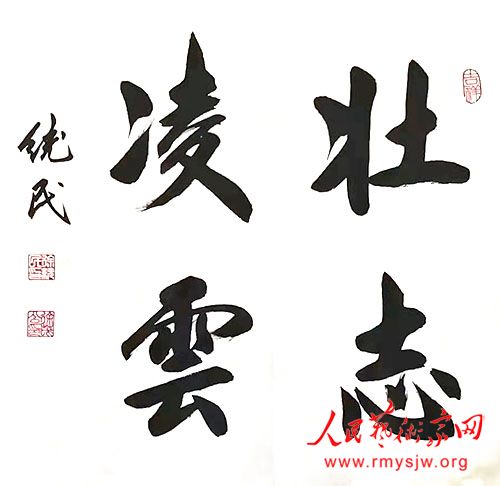 壮志
凌雲
统民
吉祥
人民藝術家网
www.rmysjw.org